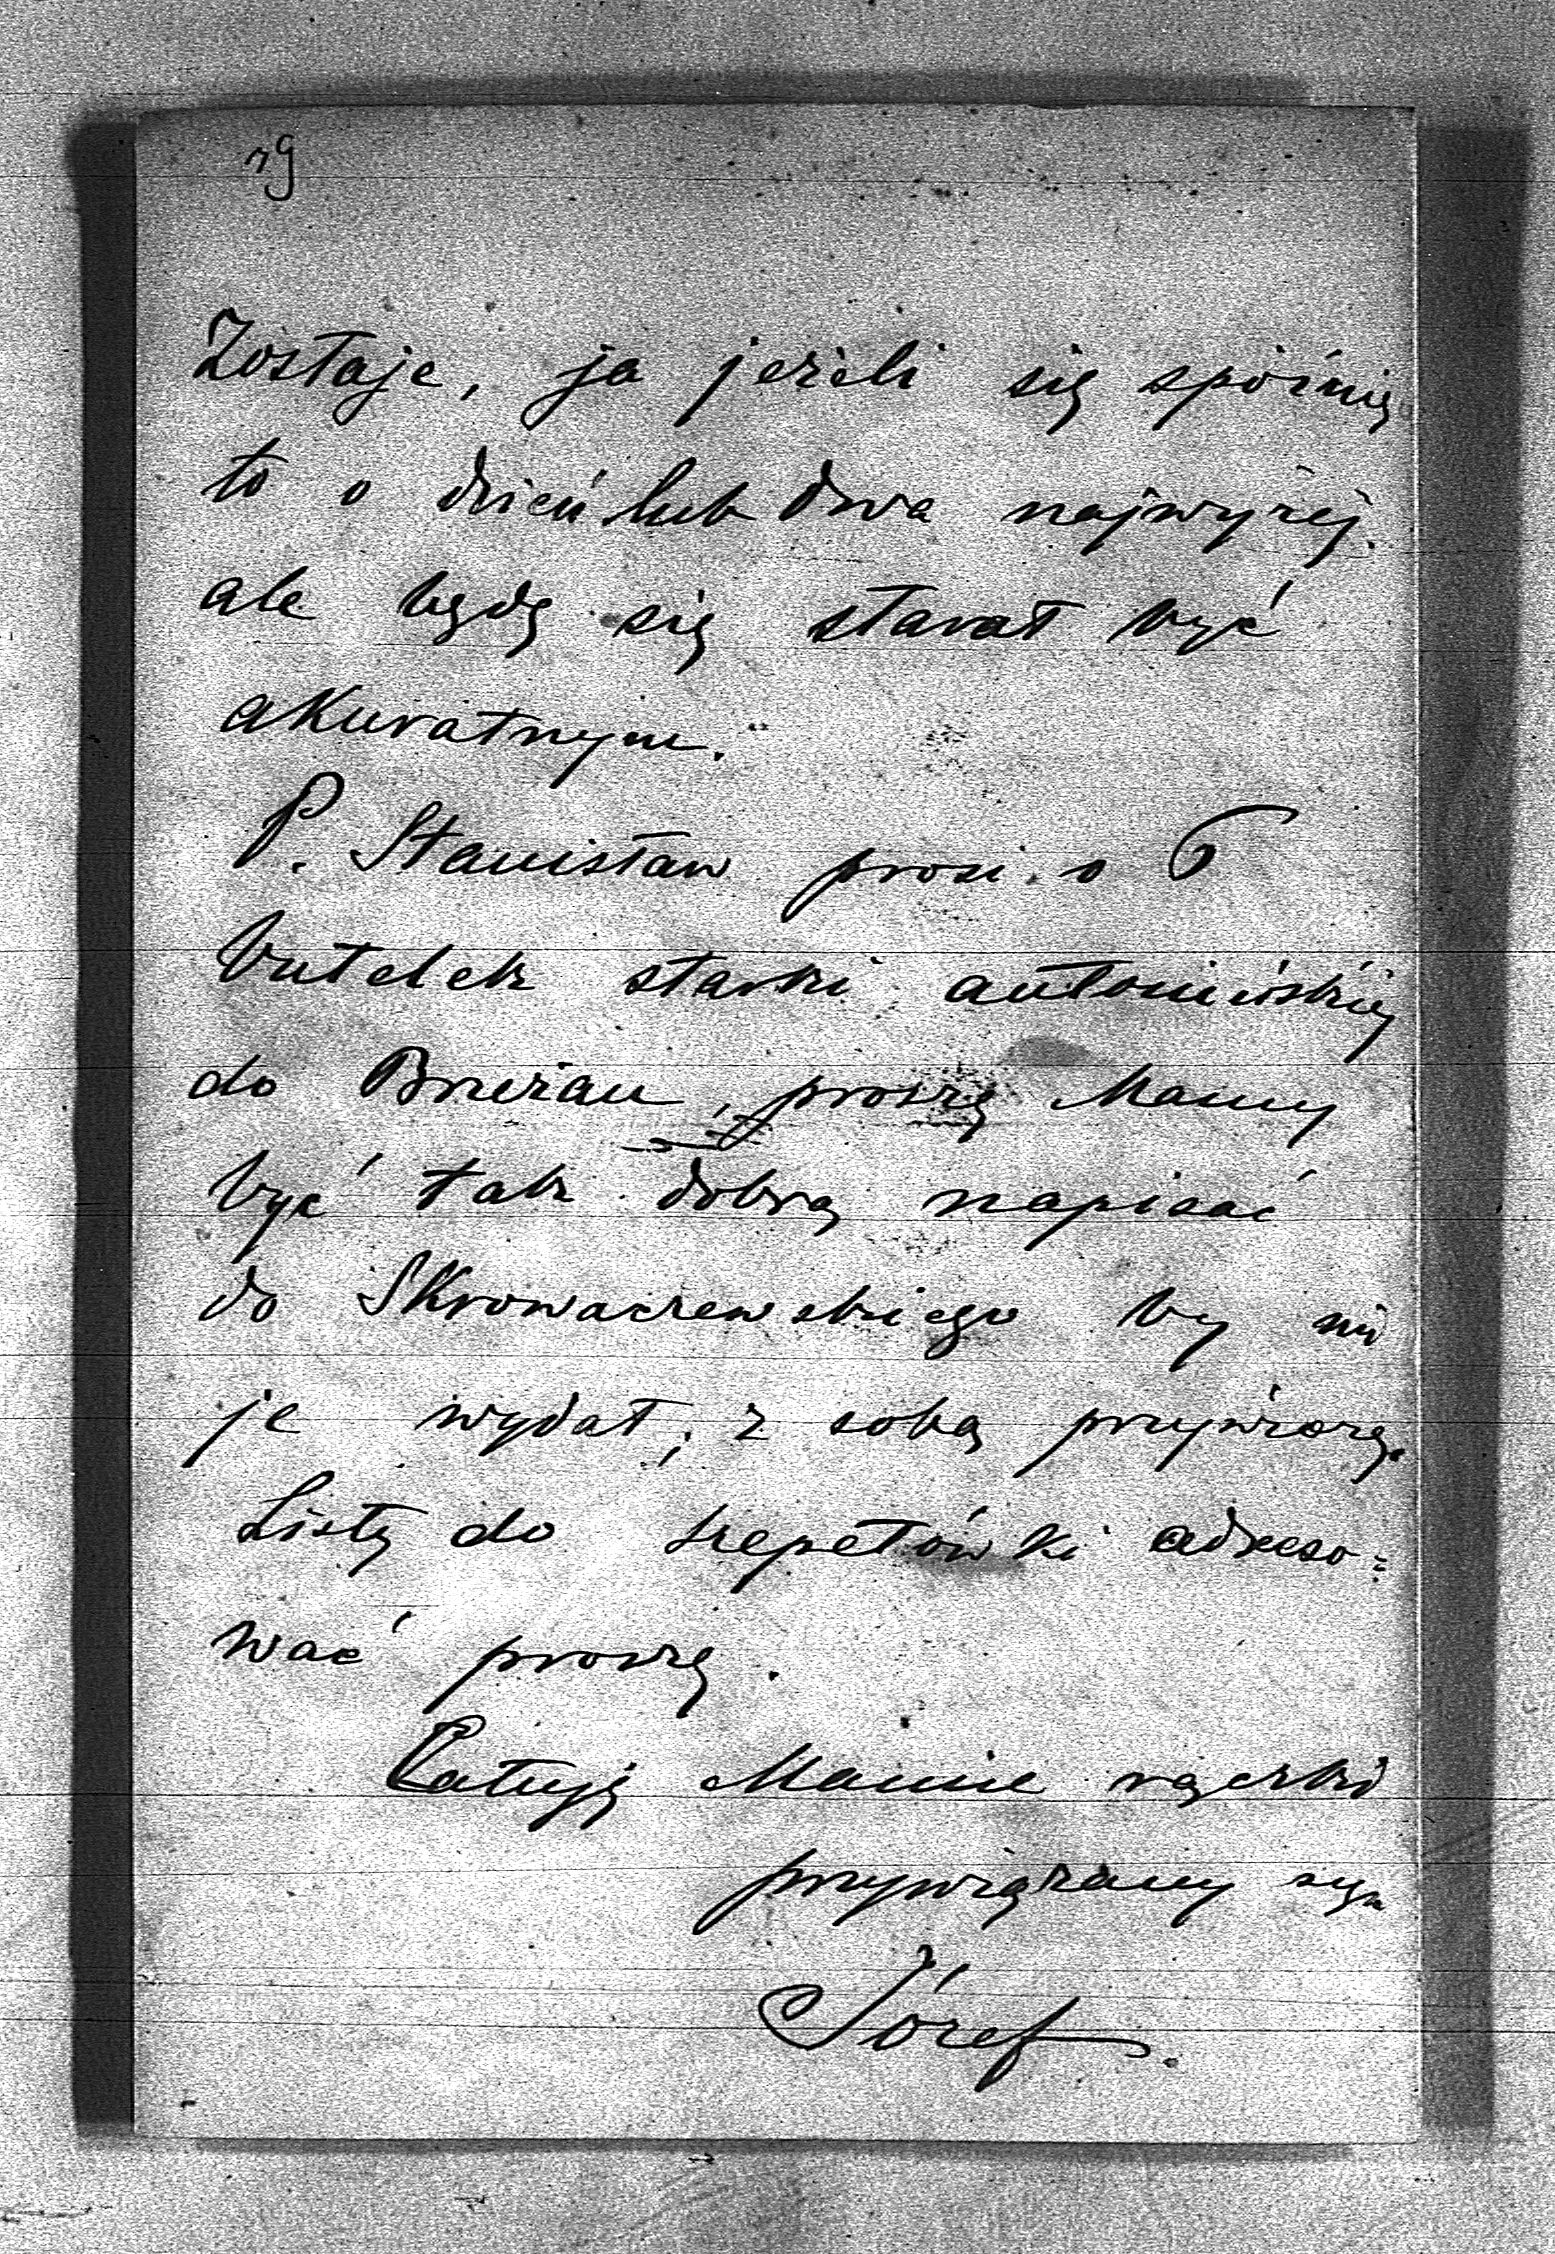 19
Zostaje, ja jeżeli się spóźnię
to o dzień lub dwa najwyżéj.
ale będę się starał być
akuratnym.
P. Stanisław prosi o 6
butelek starki antonińskiéj
do Brzeżan, proszę Mamy
być tak dobrą napisać
do Skrowaczewskiego by mi
je wydał, z sobą przywiozę.
Listy do Szepetówki adreso=
wać proszę.
Całuję Mamie rączki
przywiązany syn
Józef.